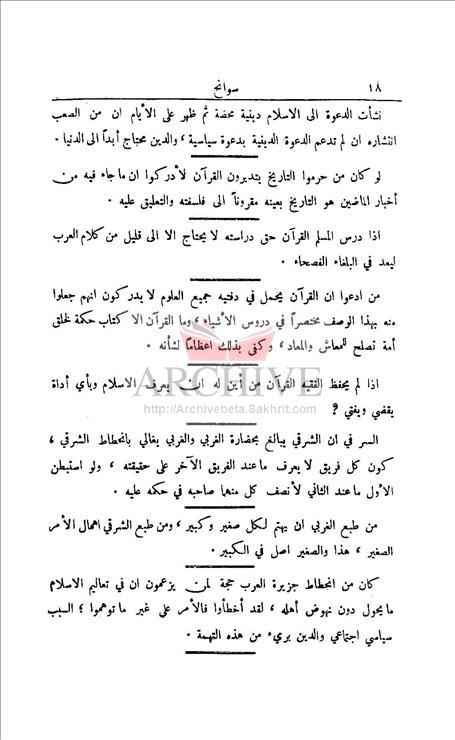 ١٨ سوانح
نشأت الدعوة الى الاسلام دينية محضة ثم ظهر على الأيام ان من الصعب
انتشاره ان لم تدعم الدعوة الدينية بدعوة سياسية ، والدين محتاج أبداً الى الدنيا .
لو كان من حرموا التاريخ يتدبرون القرآن لأدركوا ان ما جاء فيه من
أخبار الماضين هو التاريخ بعينه مقروناً الى فلسفته والتعليق عليه .
اذا درس المسلم القرآن حق دراسته لا يحتاج الا الى قليل من كلام العرب
ليعد في البلغاء الفصحاء .
من ادعوا ان القرآن يحمل في دفتيه جميع العلوم لا يدركون انهم جعلوا
منه بهذا الوصف مختصراً في دروس الأشياء ، وما القرآن الا كتاب حكمة لخلق
أمة تصلح للمعاش والمعاد ، وكفى بذلك اعظاماً لشأنه .
ARCHIVE
http://Archivebeta.Sakhrit.com
اذا لم يحفظ الفقيه القرآن من أين له ان يعرف الاسلام وبأي أداة
يقضي ويفتي ؟
السر في ان الشرقي يبالغ بحضارة الغربي والغربي يغالي بانحطاط الشرقي ،
كون كل فريق لا يعرف ما عند الفريق الآخر على حقيقته ، ولو استبطن
الأول ما عند الثاني لأنصف كل منهما صاحبه في حكمه عليه .
من طبع الغربي ان يهتم لكل صغير وكبير ، ومن طبع الشرقي اهمال الأمر
الصغير ، هذا والصغير اصل في الكبير .
كان من انحطاط جزيرة العرب حجة لمن يزعمون ان في تعاليم الاسلام
ما يحول دون نهوض أهله ، لقد أخطأوا فالأمر على غير ما توهموا ؛ السبب
سياسي اجتماعي والدين بريء من هذه التهمة .